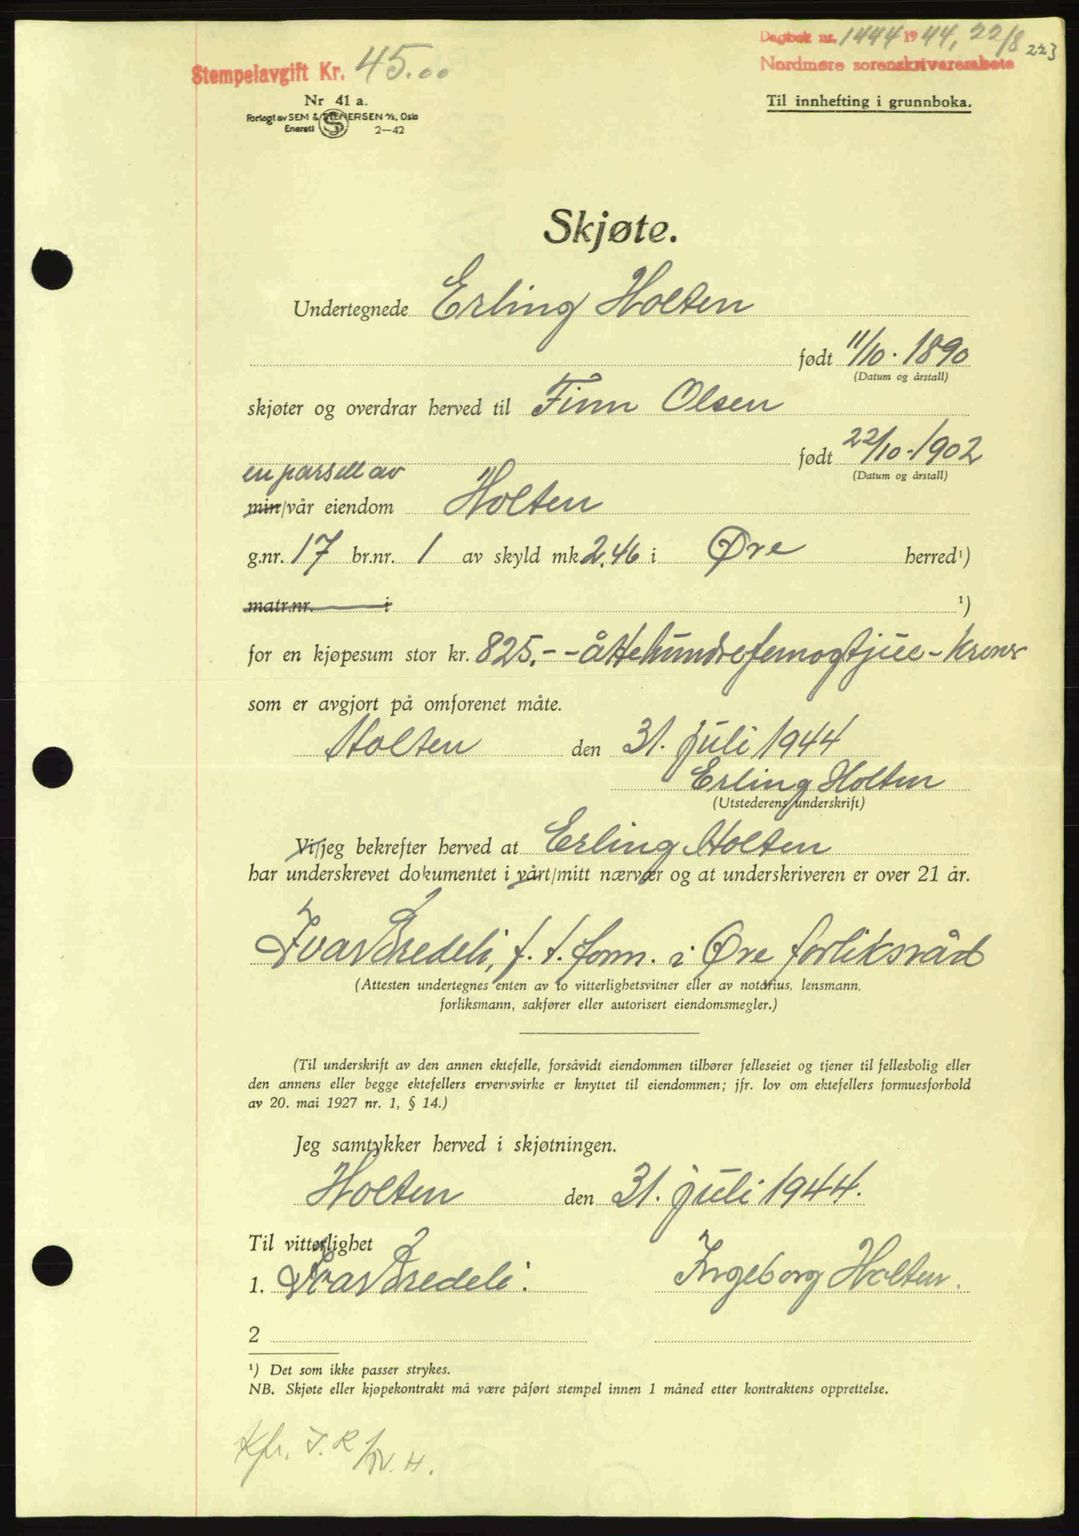 Dagbok nr. 1444 1944, 22/8
223
Stempelavgift Kr. 45.00
Nordmøre sorenskriverembete
Nr 41 a.
Til innhefting i grunnboka.
Forlagt av SEM & STENERSEN A/S, Oslo
Enerett 2—42
Skjøte.
Undertegnede Erling Holten
født 11/10. 1890
(Datum og årstall)
skjøter og overdrar herved til Finn Olsen
født 22/10-1902
(Datum og årstall)
en parsell av
min/vår eiendom Holten
g.nr. 17 br.nr. 1 av skyld mk 2,46 i Øre herred¹)
matr.nr. i ¹)
for en kjøpesum stor kr. 825.- - åttehundrefemogtjue - kroner
som er avgjort på omforenet måte.
Holten den 31. juli 1944
Erling Holten
(Utstederens underskrift)
Vi/jeg bekrefter herved at Erling Holten
har underskrevet dokumentet i vårt/mitt nærvær og at underskriveren er over 21 år.
Ivar Bredeli, f. t. form. i Øre forliksråd
(Attesten undertegnes enten av to vitterlighetsvitner eller av notarius, lensmann,
forliksmann, sakfører eller autorisert eiendomsmegler.)
(Til underskrift av den annen ektefelle, forsåvidt eiendommen tilhører felleseiet og tjener til fellesbolig eller
den annens eller begge ektefellers ervervsvirke er knyttet til eiendommen; jfr. lov om ektefellers formuesforhold
av 20. mai 1927 nr. 1, § 14.)
Jeg samtykker herved i skjøtningen.
Holten den 31. juli 1944.
Til vitterlighet
1. Ivar Bredeli. Ingeborg Holten.
2
¹) Det som ikke passer strykes.
NB. Skjøte eller kjøpekontrakt må være påført stempel innen 1 måned etter kontraktens opprettelse.